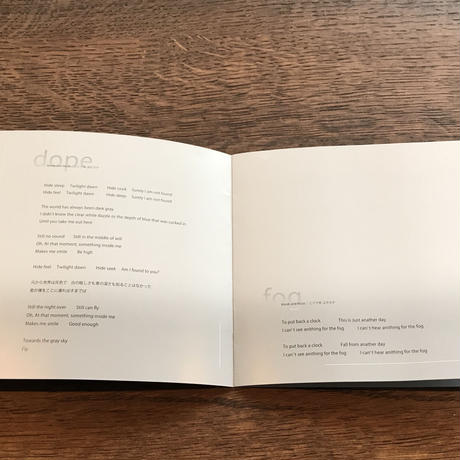 dope
Hide sleep Twilight dawn Hide seek Surely I am not found
Hide feel Twilight dawn Hide sleep Surely I am not found
The world has always been dark gray
I didn't know the clear white dazzle or the depth of blue that was sucked in.
Until you take me out here
Still no sound Still in the middle of will
Oh, At that moment, something inside me
Makes me smile Be high
Hide feel Twilight dawn Hide seek Am I found to you?
元から世界は灰色で 白の眩しさも青の深さも知ることはなかった
君が僕をここに連れ出すまでは
Still the night over Still can fly
Oh, At that moment, something inside me
Makes me smile Good enough
Towards the gray sky
Fly
fog
To put back a clock This is just anather day
I can't see anithing for the fog I can't hear anithing for the fog.
To put back a clock Fall from anather day
I can't see anithing for the fog I can't hear anithing for the fog.